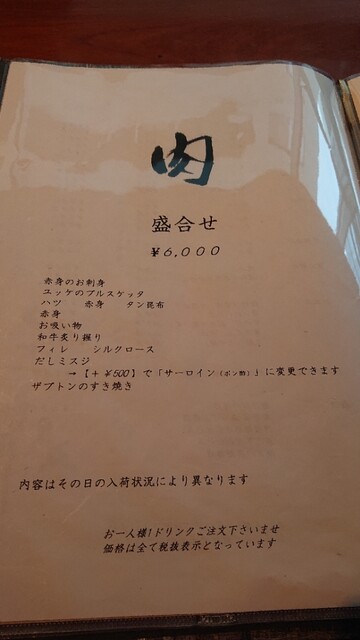 肉
盛合せ
¥6,000
赤身のお刺身
ユッケのブルスケッタ
ハツ　赤身　タン昆布
赤身
お吸い物
和牛炙り握り
フィレ　シルクロース
だしミスジ
→【+ ¥500】で「サーロイン(ポン酢)」に変更できます
ザブトンのすき焼き
内容はその日の入荷状況により異なります
お一人様1ドリンクご注文下さいませ
価格は全て税抜表示となっています